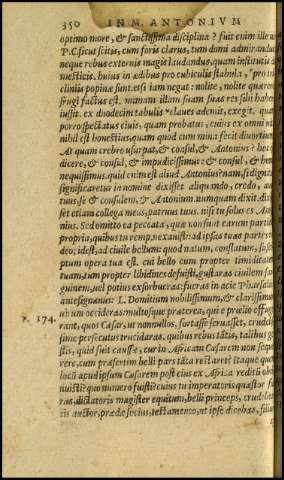 350 IN M. ANTONIVM
optimo more, & sanctissima disciplina? fuit enim ille u
P.C. sicut scitis, cum foris clarus, tum domi admirandu
neque rebus externis magis laudandus, quam institutis d
mesticis. huius in ædibus pro cubiculis stabula, pro tri
cliniis popinæ sunt. etsi iam negat: nolite, nolite quære
frugi factus est. mimam illam suam suas res sibi habe
iussit. ex duodecim tabulis claues ademit, exegit. qua
porro spectatus ciuis, quam probatus, cuius ex omni ui
nihil est honestius, quam quod cum mima fecit diuortium
At quam crebro usurpat, & consul, & Antonius? hoc
dicere, & consul, & impudicissimus: & consul, & hom
nequissimus. quid enim est aliud Antonius? nam, si dignita
significaretur in nomine dixisset aliquando, credo, au
tuus, se & consulem, & Antonium. numquam dixit. dix
set etiam collega meus, patruus tuus. nisi tu solus es An
nius. Sed omitto ea peccata, quæ non sunt earum parti
propria, quibus tu remp. uexauisti: ad ipsas tuas partes
deo; idest, ad ciuile bellum: quod natum, conflatum, susce
ptum opera tua est. cui bello cum propter timiditatem
tuam, tum propter libidines defuisti, gustaras ciuilem san
guinem, uel potius exsorbueras: fueras in acie Pharsali
antesignanus: L. Domitium nobilissimum, & clarissimu
P. 174. uirum occideras: multosque præterea, qui e prælio effug
rant, quos Cæsar, ut nonnullos, fortasse seruasset, crudelis
sime persecutus trucidaras. quibus rebus tantis, talibus ge
stis, quid fuit caussæ, cur in Africam Cæsarem non sequ
rere, cum præsertim belli pars tanta restaret? itaque quem
locum apud ipsum Cæsarem post eius ex Africa reditum ob
nuisti? quo numero fuisti? cuius tu imperatoris quæstor fu
ras, dictatoris magister equitum, belli princeps, crudelita
tis auctor, prædæ socius, testamento, ut ipse dicebas, filiu